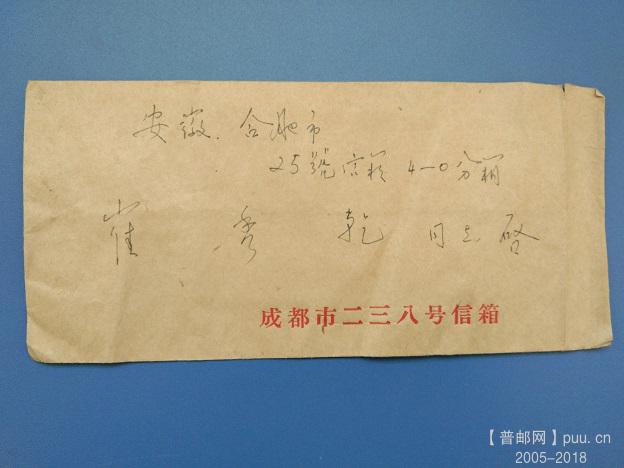 安徽.合肥市
25號信箱4-10分箱
崔秀乾同志啓
成都市二三八号信箱
【普邮网】puu.cn
2005-2018